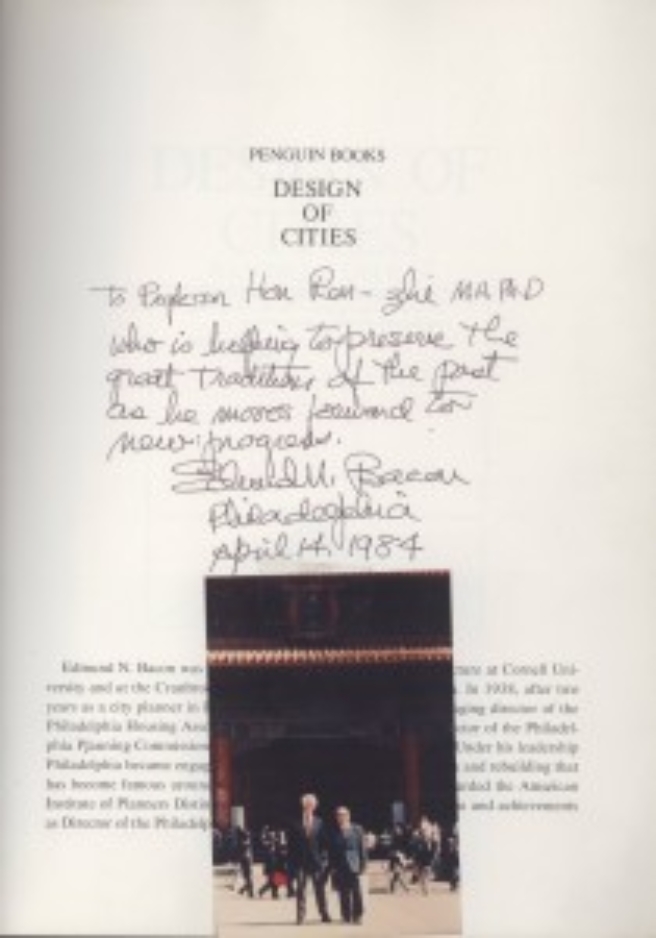 PENGUIN BOOKS
DESIGN
OF
CITIES
To Professor Hou Ren-zhi MA PhD
who is helping to preserve the
great traditions of the past
as he moves forward to
new progress.
Edmund N. Bacon
Philadelphia
April 14, 1984
Edmund N. Bacon was
ture at Cornell Uni-
versity and at the
. In 1938, after two
years as a city planner in
ging director of the
Philadelphia Housing
tor of the Philadel-
phia Planning Commission
Under his leadership
Philadelphia became
and rebuilding that
has become famous
arded the American
Institute of Planners
and achievements
as Director of the